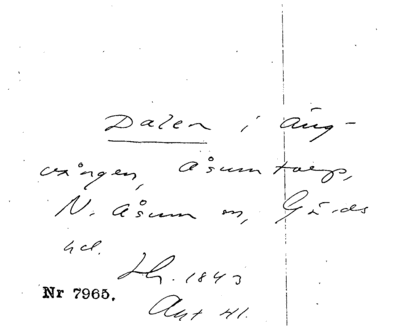 Dalen i Äng-
vången, Åsumtorp,
N. Åsum sn, Gärds
hd.
Lh. 1843
Nr 7965.
Akt 41.